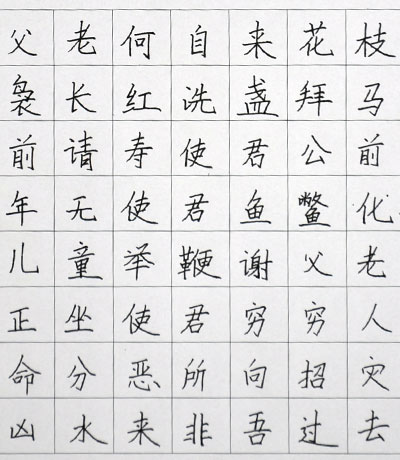 父老何自来花枝
袅长红洗盏拜马
前请寿使君公前
年无使君鱼鳖化
儿童举鞭谢父老
正坐使君穷穷人
命分恶所向招灾
凶水来非吾过去